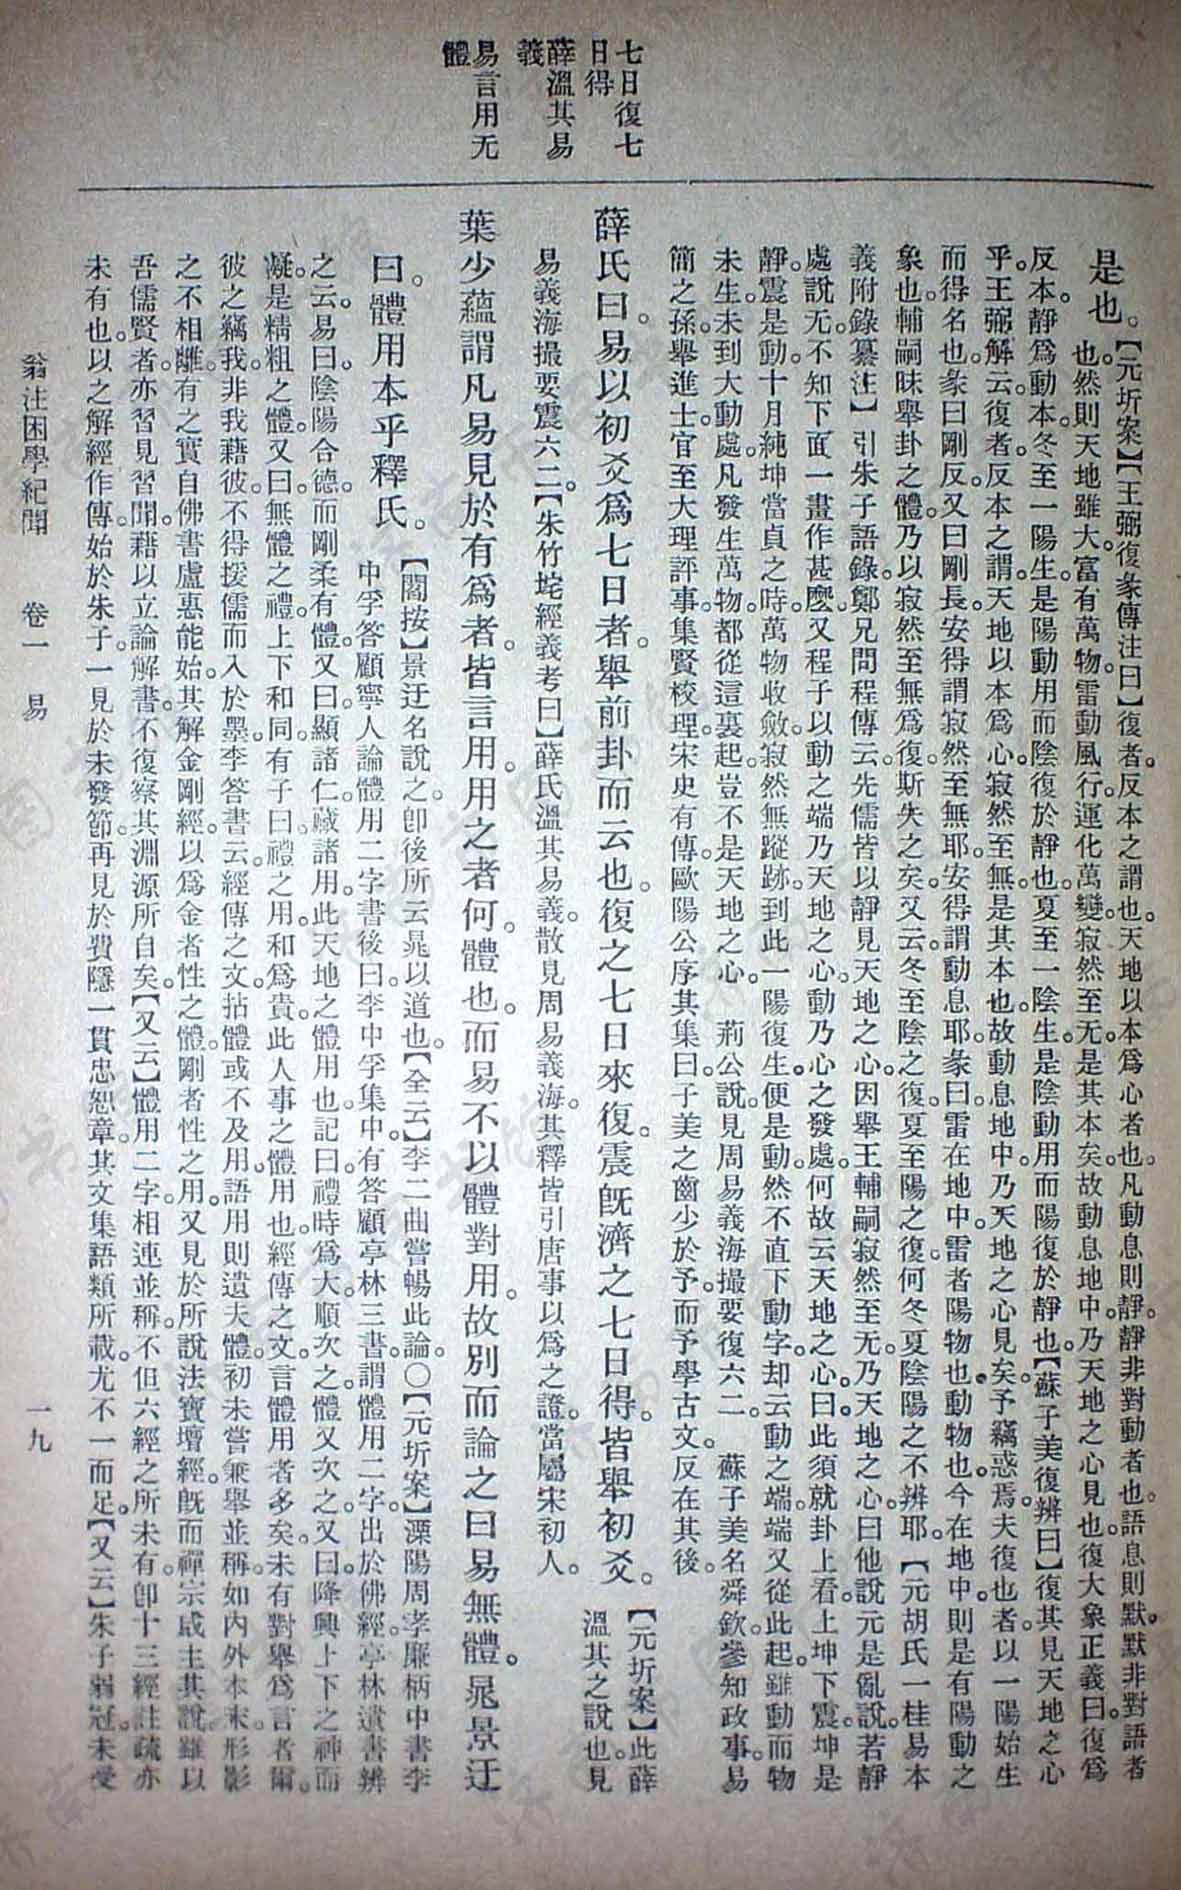 七日復七
日得
薛溫其易
義
易言用无
體
是也。【元圻案】【王弼復彖傳注曰】復者。反本之謂也。天地以本爲心者也。凡動息則靜。靜非對動者也。語息則默。默非對語者
也。然則天地雖大。富有萬物。雷動風行。運化萬變。寂然至无。是其本矣。故動息地中。乃天地之心見也。復大象正義曰。復爲
反本。靜爲動本。冬至一陽生。是陽動用而陰復於靜也。夏至一陰生。是陰動用而陽復於靜也。【蘇子美復辨曰】復其見天地之心
乎。王弼解云。復者。反本之謂。天地以本爲心。寂然至無。是其本也。故動息地中。乃天地之心見矣。予竊惑焉。夫復也者。以一陽始生
而得名也。彖曰剛反。又曰剛長。安得謂寂然至無耶。安得謂動息耶。彖曰。雷在地中。雷者陽物也。動物也。今在地中。則是有陽動之
象也。輔嗣昧舉卦之體。乃以寂然至無爲復。斯失之矣。又云。冬至陰之復。夏至陽之復。何冬夏陰陽之不辨耶。【元胡氏一桂易本
義附錄纂注】引朱子語錄。鄭兄問程傳云。先儒皆以靜見天地之心。因舉王輔嗣寂然至无。乃天地之心。曰他說元是亂說。若靜
處說无。不知下面一畫作甚麼。又程子以動之端乃天地之心。動乃心之發處。何故云天地之心。曰此須就卦上看。上坤下震。坤是
靜。震是動。十月純坤當貞之時。萬物收斂。寂然無蹤跡。到此一陽復生。便是動。然不直下動字。却云動之端。端又從此起。雖動而物
未生。未到大動處。凡發生萬物。都從這裏起。豈不是天地之心。 荊公說。見周易義海撮要復六二。 蘇子美名舜欽。參知政事。易
簡之孫。舉進士。官至大理評事。集賢校理。宋史有傳。歐陽公序其集曰。子美之齒少於予。而予學古文。反在其後。
薛氏曰。易以初爻爲七日者。舉前卦而云也。復之七日來復。震旣濟之七日得。皆舉初爻。【元圻案】此薛
溫其之說也。見
易義海撮要震六二。【朱竹垞經義考曰】薛氏溫其易義。散見周易義海。其釋皆引唐事以爲之證。當屬宋初人。
葉少蘊謂凡易見於有爲者。皆言用。用之者何。體也。而易不以體對用。故別而論之曰易無體。晁景迂
曰。體用本乎釋氏。【閻按】景迂名說之。卽後所云晁以道也。【全云】李二曲嘗暢此論。〇【元圻案】溧陽周孝廉柄中書李
中孚答顧寧人論體用二字書後曰。李中孚集中。有答顧亭林三書。謂體用二字。出於佛經。亭林遺書辨
之云。易曰。陰陽合德。而剛柔有體。又曰。顯諸仁。藏諸用。此天地之體用也。記曰。禮時爲大。順次之。體又次之。又曰。降興上下之神。而
凝是精粗之體。又曰。無體之禮。上下和同。有子曰。禮之用。和爲貴。此人事之體用也。經傳之文。言體用者多矣。未有對舉爲言者爾。
彼之竊我。非我藉彼。不得援儒而入於墨。李答書云。經傳之文。拈體或不及用。語用則遺夫體。初未嘗兼舉並稱。如內外本末。形影
之不相離。有之實自佛書盧惠能始。其解金剛經。以爲金者性之體。剛者性之用。又見於所說法寶壇經。旣而禪宗咸主其說。雖以
吾儒賢者。亦習見習聞。藉以立論解書。不復察其淵源所自矣。【又云】體用二字。相連並稱。不但六經之所未有。卽十三經註疏亦
未有也。以之解經作傳。始於朱子。一見於未發節。再見於費隱一貫忠恕章。其文集語類所載。尤不一而足。【又云】朱子弱冠。未受
翁注困學紀聞 卷一 易
一九